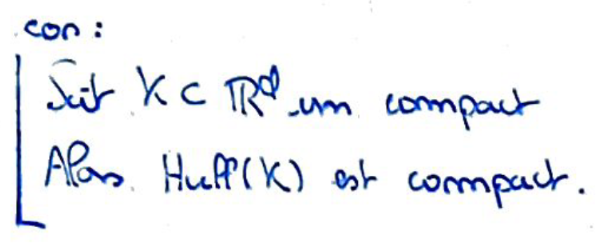 con :
Soit K ⊂ ℝᵈ un compact
Alors Huff(K) est compact.